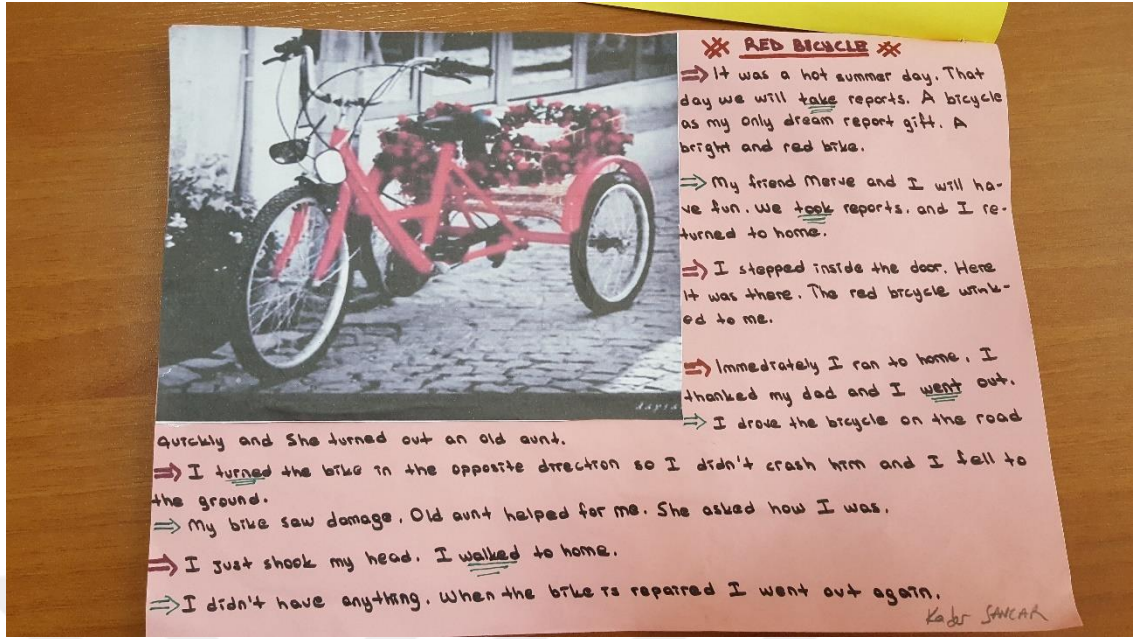 RED BICYCLE
⇒ It was a hot summer day. That
day we will take reports. A bicycle
as my only dream report gift. A
bright and red bike.
⇒ My friend Merve and I will ha-
ve fun. We took reports. and I re-
turned to home.
⇒ I stepped inside the door. Here
it was there. The red bicycle wink-
ed to me.
⇒ Immediately I ran to home. I
thanked my dad and I went out.
⇒ I drove the bicycle on the road
quickly and she turned out an old aunt.
⇒ I turned the bike in the opposite direction so I didn't crash him and I fell to
the ground.
⇒ My bike saw damage. Old aunt helped for me. She asked how I was.
⇒ I just shook my head. I walked to home.
⇒ I didn't have anything. When the bike is repaired I went out again.
Kader SANCAR